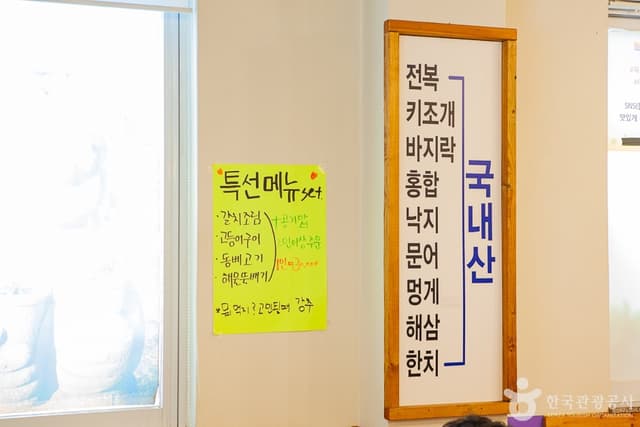 특선메뉴 set.
·갈치조림
·고등어구이
·돔베고기
·해물뚝배기
+공기밥
2인이상주문
*뭐 먹지? 고민될때 강추
전복
키조개
바지락
홍합
낙지
문어
멍게
해삼
한치
국내산
한국관광공사